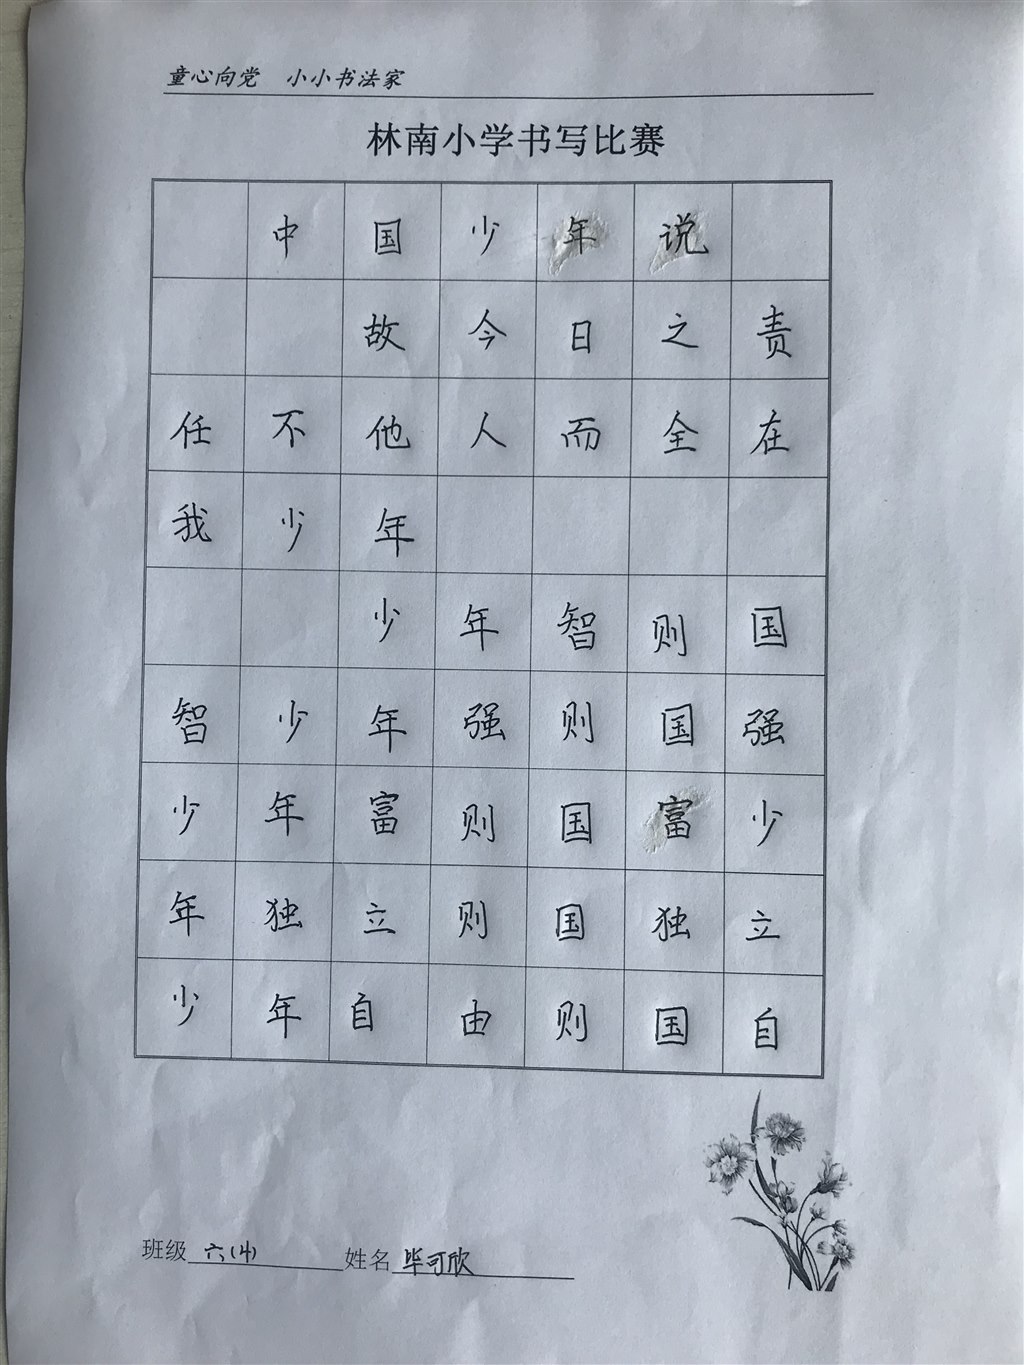 童心向党 小小书法家
林南小学书写比赛
中国少年说
故今日之责
任不他人而全在
我少年
少年智则国
智少年强则国强
少年富则国富少
年独立则国独立
少年自由则国自
班级 六(4) 姓名 毕可欣